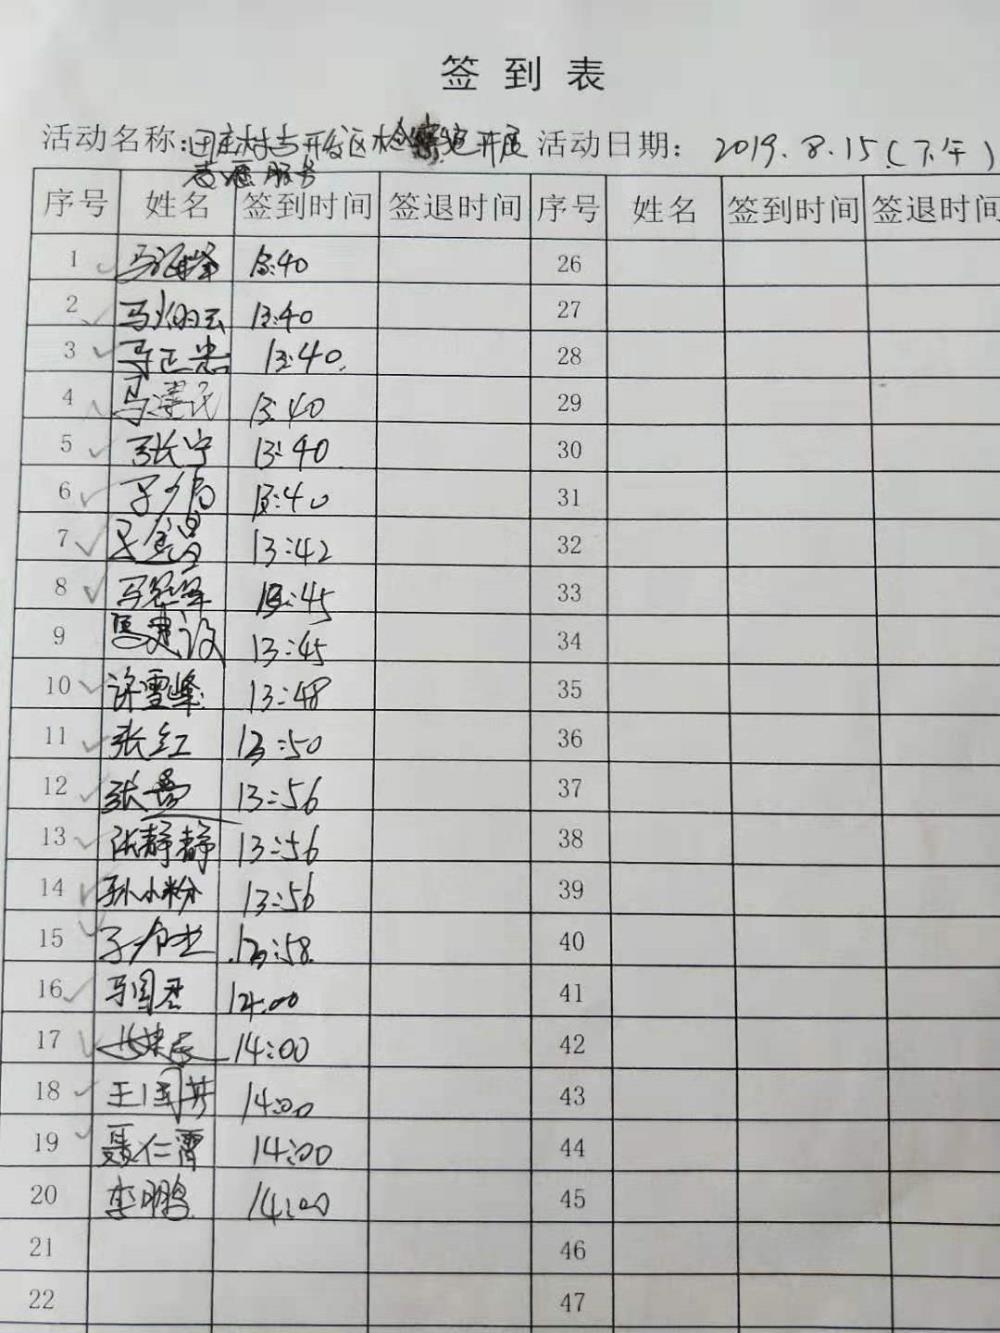 签到表
活动名称: 田庄村与开发区检察院开展 活动日期: 2019.8.15(下午)
志愿服务
序号 姓名 签到时间 签退时间 序号 姓名 签到时间 签退时间
1 马海峰 13:40 26
2 马 13:40 27
3 马正忠 13:40. 28
4 马泽民 13:40 29
5 张宁 13:40 30
6 13:40 31
7 13:42 32
8 马 13:45 33
9 马建设 13:45 34
10 许雪峰 13:48 35
11 张红 13:50 36
12 张 13:56 37
13 张静静 13:56 38
14 孙小粉 13:56 39
15 13:58. 40
16 马国君 14:00 41
17 14:00 42
18 王国芬 14:00 43
19 聂仁霄 14:00 44
20 李鹏 14:00 45
21 46
22 47